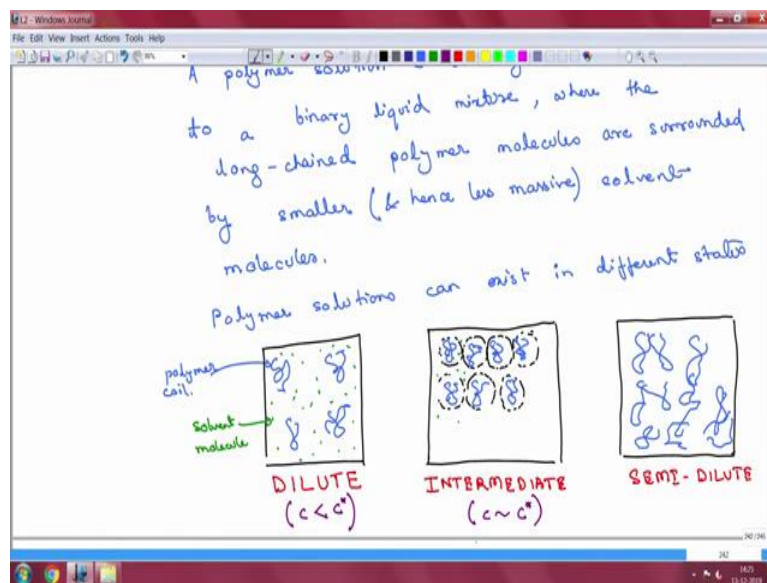 L2 - Windows Journal
File Edit View Insert Actions Tools Help
A polymer solution
to a binary liquid mixture, where the
long-chained polymer molecules are surrounded
by smaller (& hence less massive) solvent
molecules.
Polymer solutions can exist in different states
polymer
coil.
solvent
molecule
DILUTE
(c < c*)
INTERMEDIATE
(c ~ c*)
SEMI-DILUTE
242
14:25